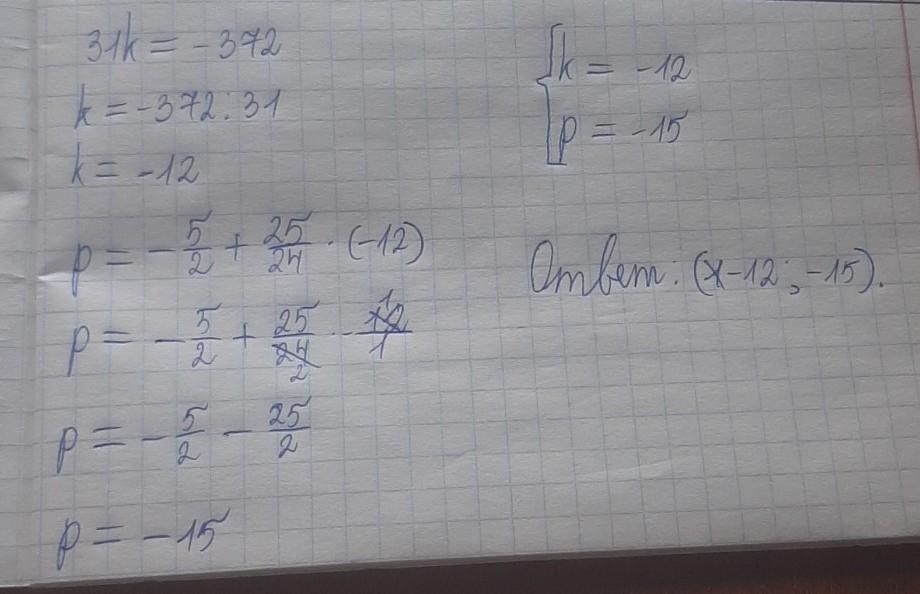 31k = -372
k = -372:31
k = -12
p = -5/2 + 25/24 · (-12)
p = -5/2 + 25/24 2 · -12/1 1
p = -5/2 - 25/2
p = -15
{k = -12
p = -15
Ответ: (x-12; -15).